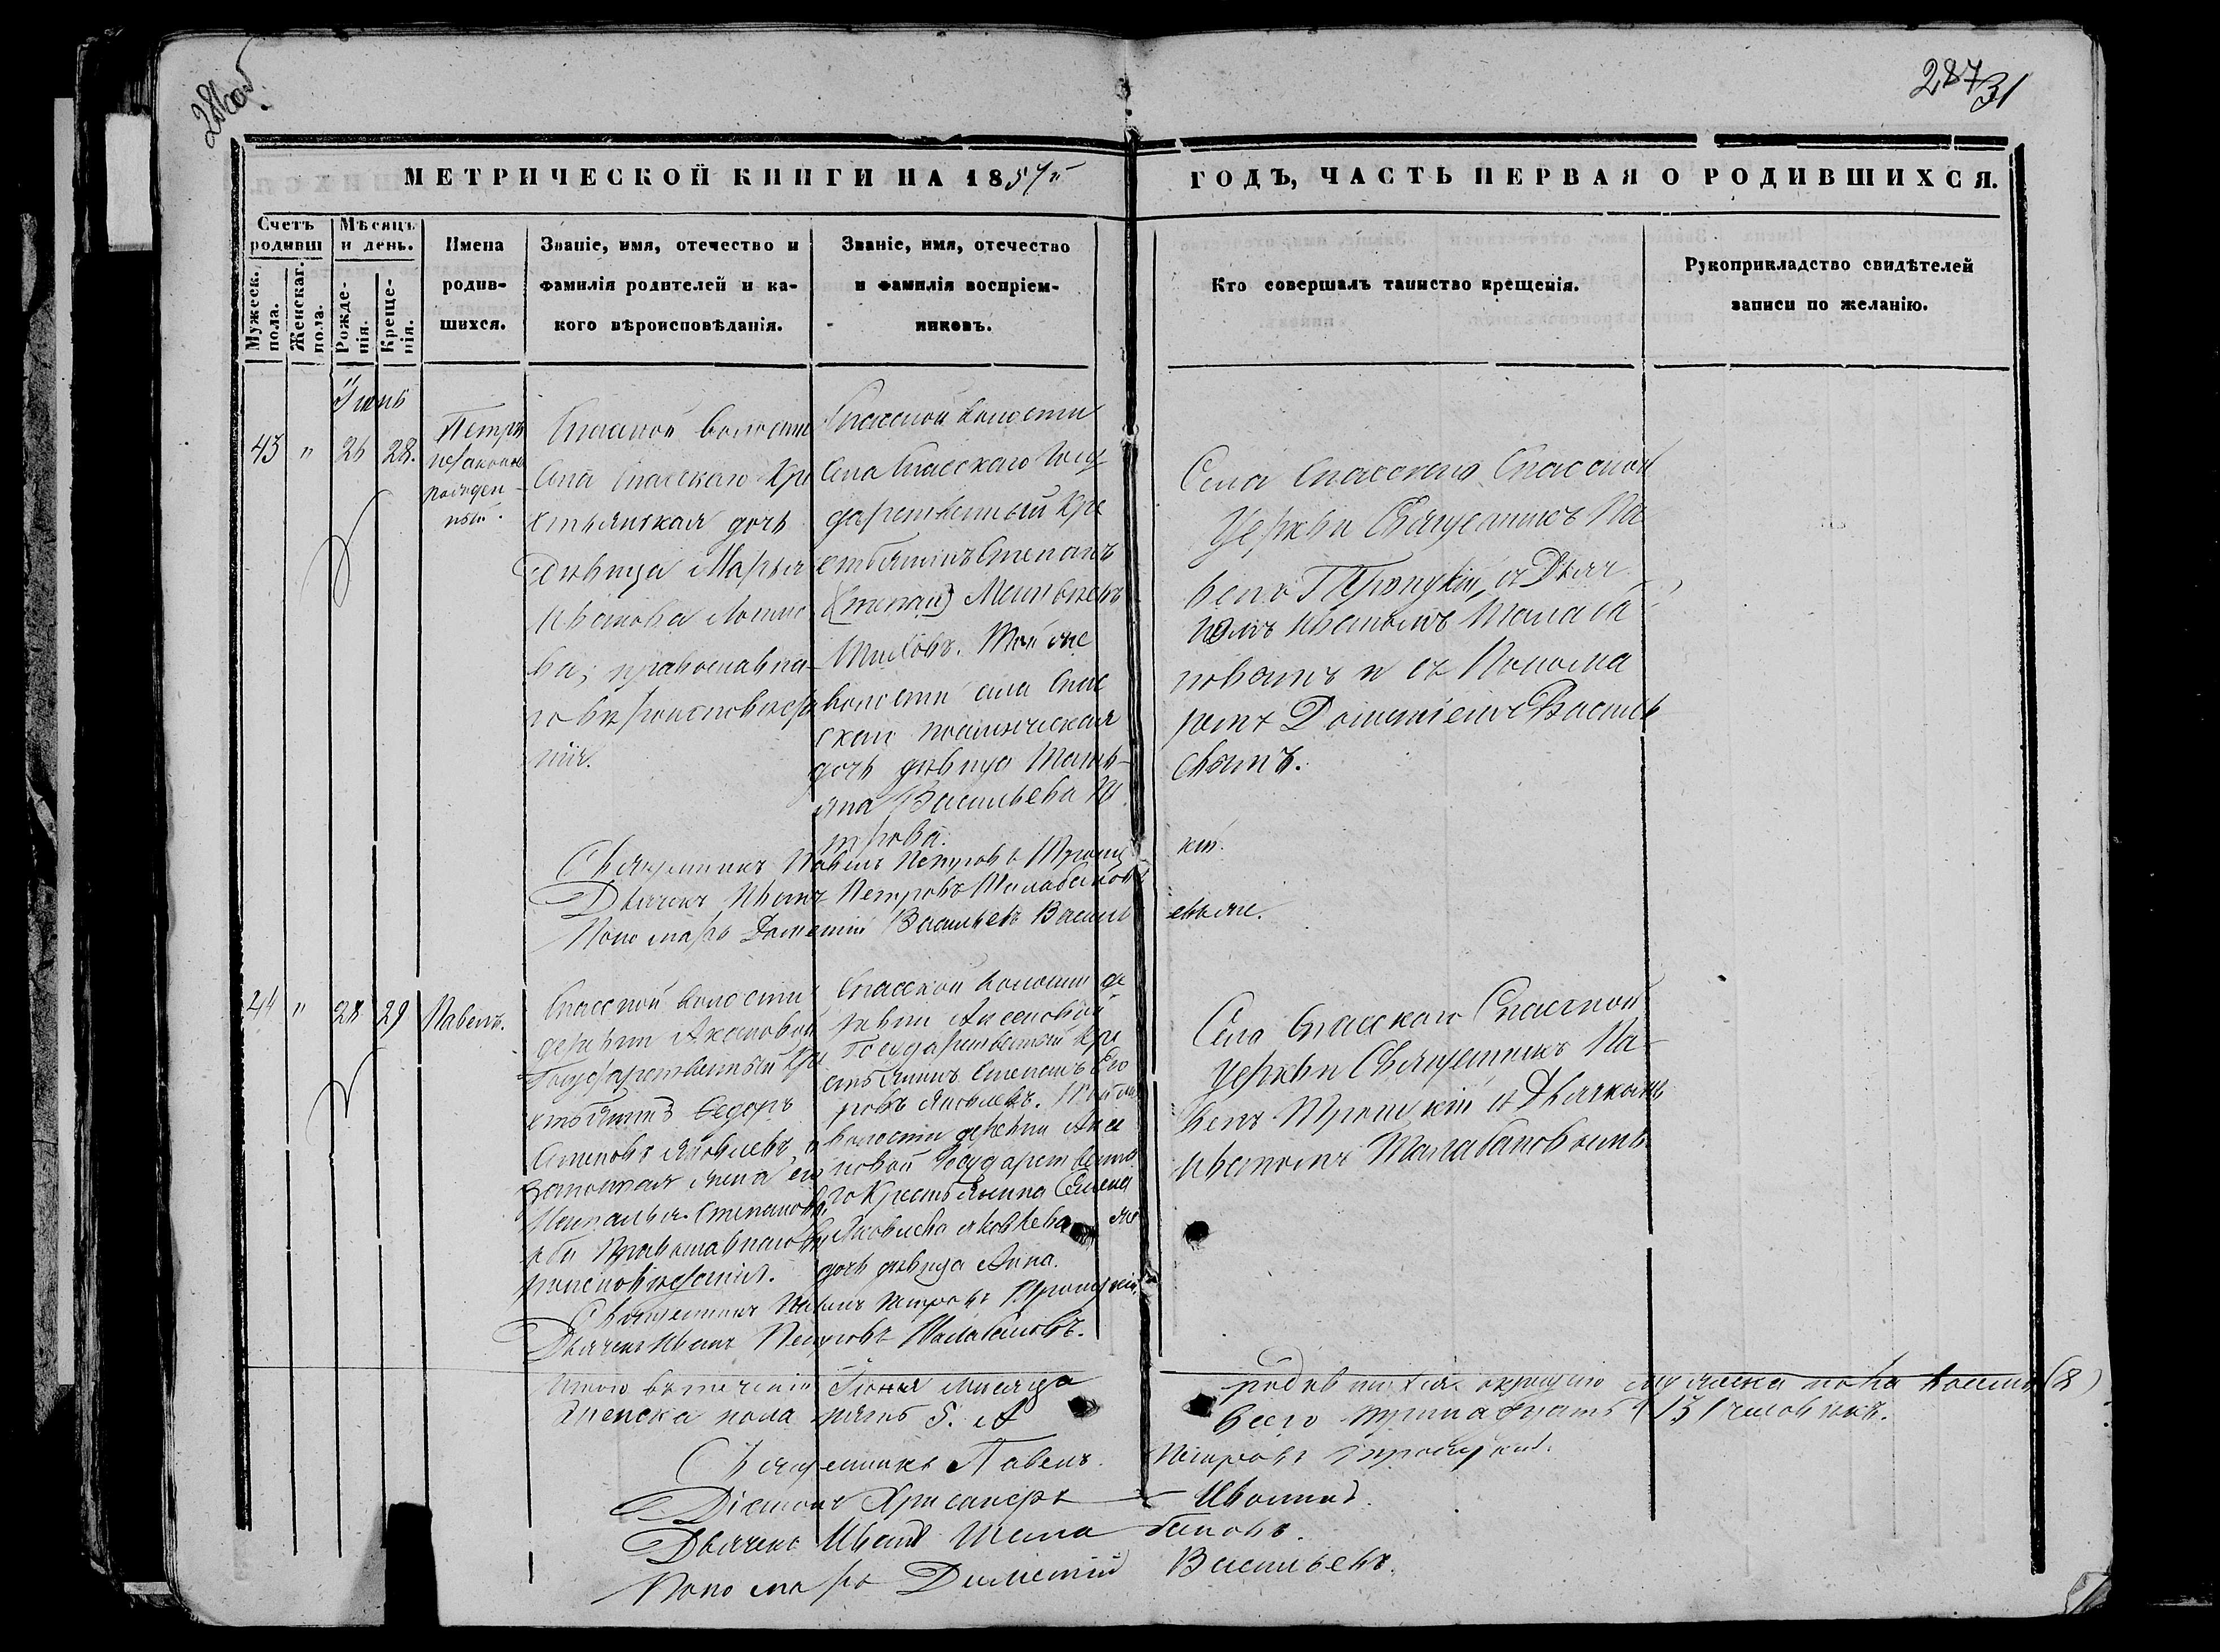 286 об.
287
31
МЕТРИЧЕСКОЙ КНИГИ НА 1857й
ГОДЪ, ЧАСТЬ ПЕРВАЯ О РОДИВШИХСЯ.
Счетъ родивш
Мѣсяцъ и день.
Мужеск. пола.
Женскаг. пола.
Рожденія.
Крещенія.
Имена родившихся.
Званіе, имя, отечество и фамилія родителей и какого вѣроисповѣданія.
Званіе, имя, отечество и фамилія воспріемниковъ.
Кто совершалъ таинство крещенія.
Рукоприкладство свидѣтелей записи по желанію.
Іюнь
43 " 26 28.
Петръ
незаконно
рожден-
ный.
Спасской волости
Села Спасскаго Кре
стьянская дочь
дѣвица Марья
Иванова
ва, православна
го вѣроисповѣда
нія.
Спасской волости
Села Спасскаго Госу
дарственный Кре
стьянинъ Степанъ
(Степан)
Той же
волости села Спас
скаго
дочь дѣвица Тать-
яна Васильева Пе
трова.
Села Спасскаго Спасской
Церкви Священникъ Па
велъ Троицкій съ Дьяч
комъ Иваномъ Малаба
новымъ и съ Понома
ремъ Дометіемъ Василь
евымъ.
Священникъ Павелъ Петровъ Троиц
кій.
Дьячекъ Иванъ Петровъ Малабановъ
Пономарь Дометій Васильевъ Василь
евъ
44 " 28 29
Павелъ.
Спасской волости
деревни Аксеновой
Государственный Кре
стьянинъ Федоръ
Семеновъ Яковлевъ и
законная жена его
Наталья Степанова
оба Православнаго вѣ
роисповѣданія.
Спасской волости де
ревни Аксеновой
Государственный Кре
стьянинъ Степанъ Его
ровъ Яковлевъ. Той же
волости деревни Аксе
новой Государственна
го Крестьянина Семена
Яковлева Яковлева
дочь дѣвица Анна.
Села Спасскаго Спасской
Церкви Священникъ Па-
велъ Троицкій съ Дьячкомъ
Иваномъ Малабановымъ
Священникъ Павелъ Петровъ Троицкій,
Дьячекъ Иванъ Петровъ Малабановъ.
Итого въ теченіи Іюня мѣсяца
родившихся окрещено мужеска пола восемь (8)
Женска пола пять 5. А
всего тринадцать (13) человѣкъ.
Священникъ Павелъ Петровъ Троицкій.
Діаконъ Хрисанфъ Ивановъ.
Дьячекъ Иванъ Малабановъ.
Пономарь Дометій Васильевъ.